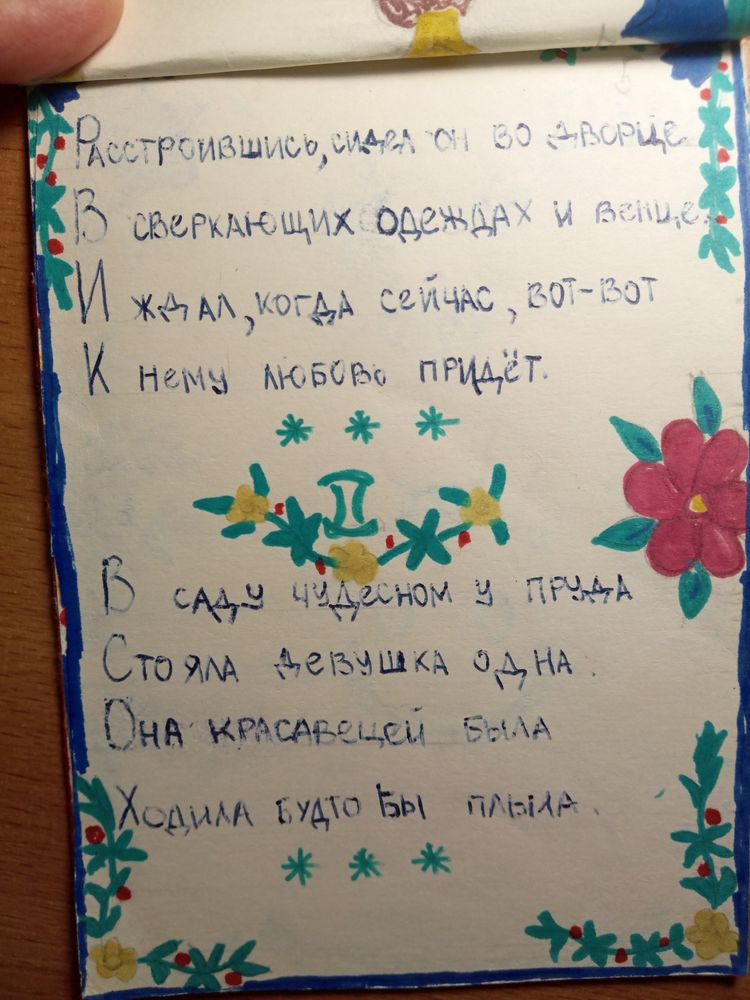 Расстроившись, сидел он во дворце
В сверкающих одеждах и венце.
И ждал, когда сейчас, вот-вот
К нему любовь придёт.
* * *
II
В саду чудесном у пруда
Стояла девушка одна.
Она красавецей была
Ходила будто бы плыла.
* * *